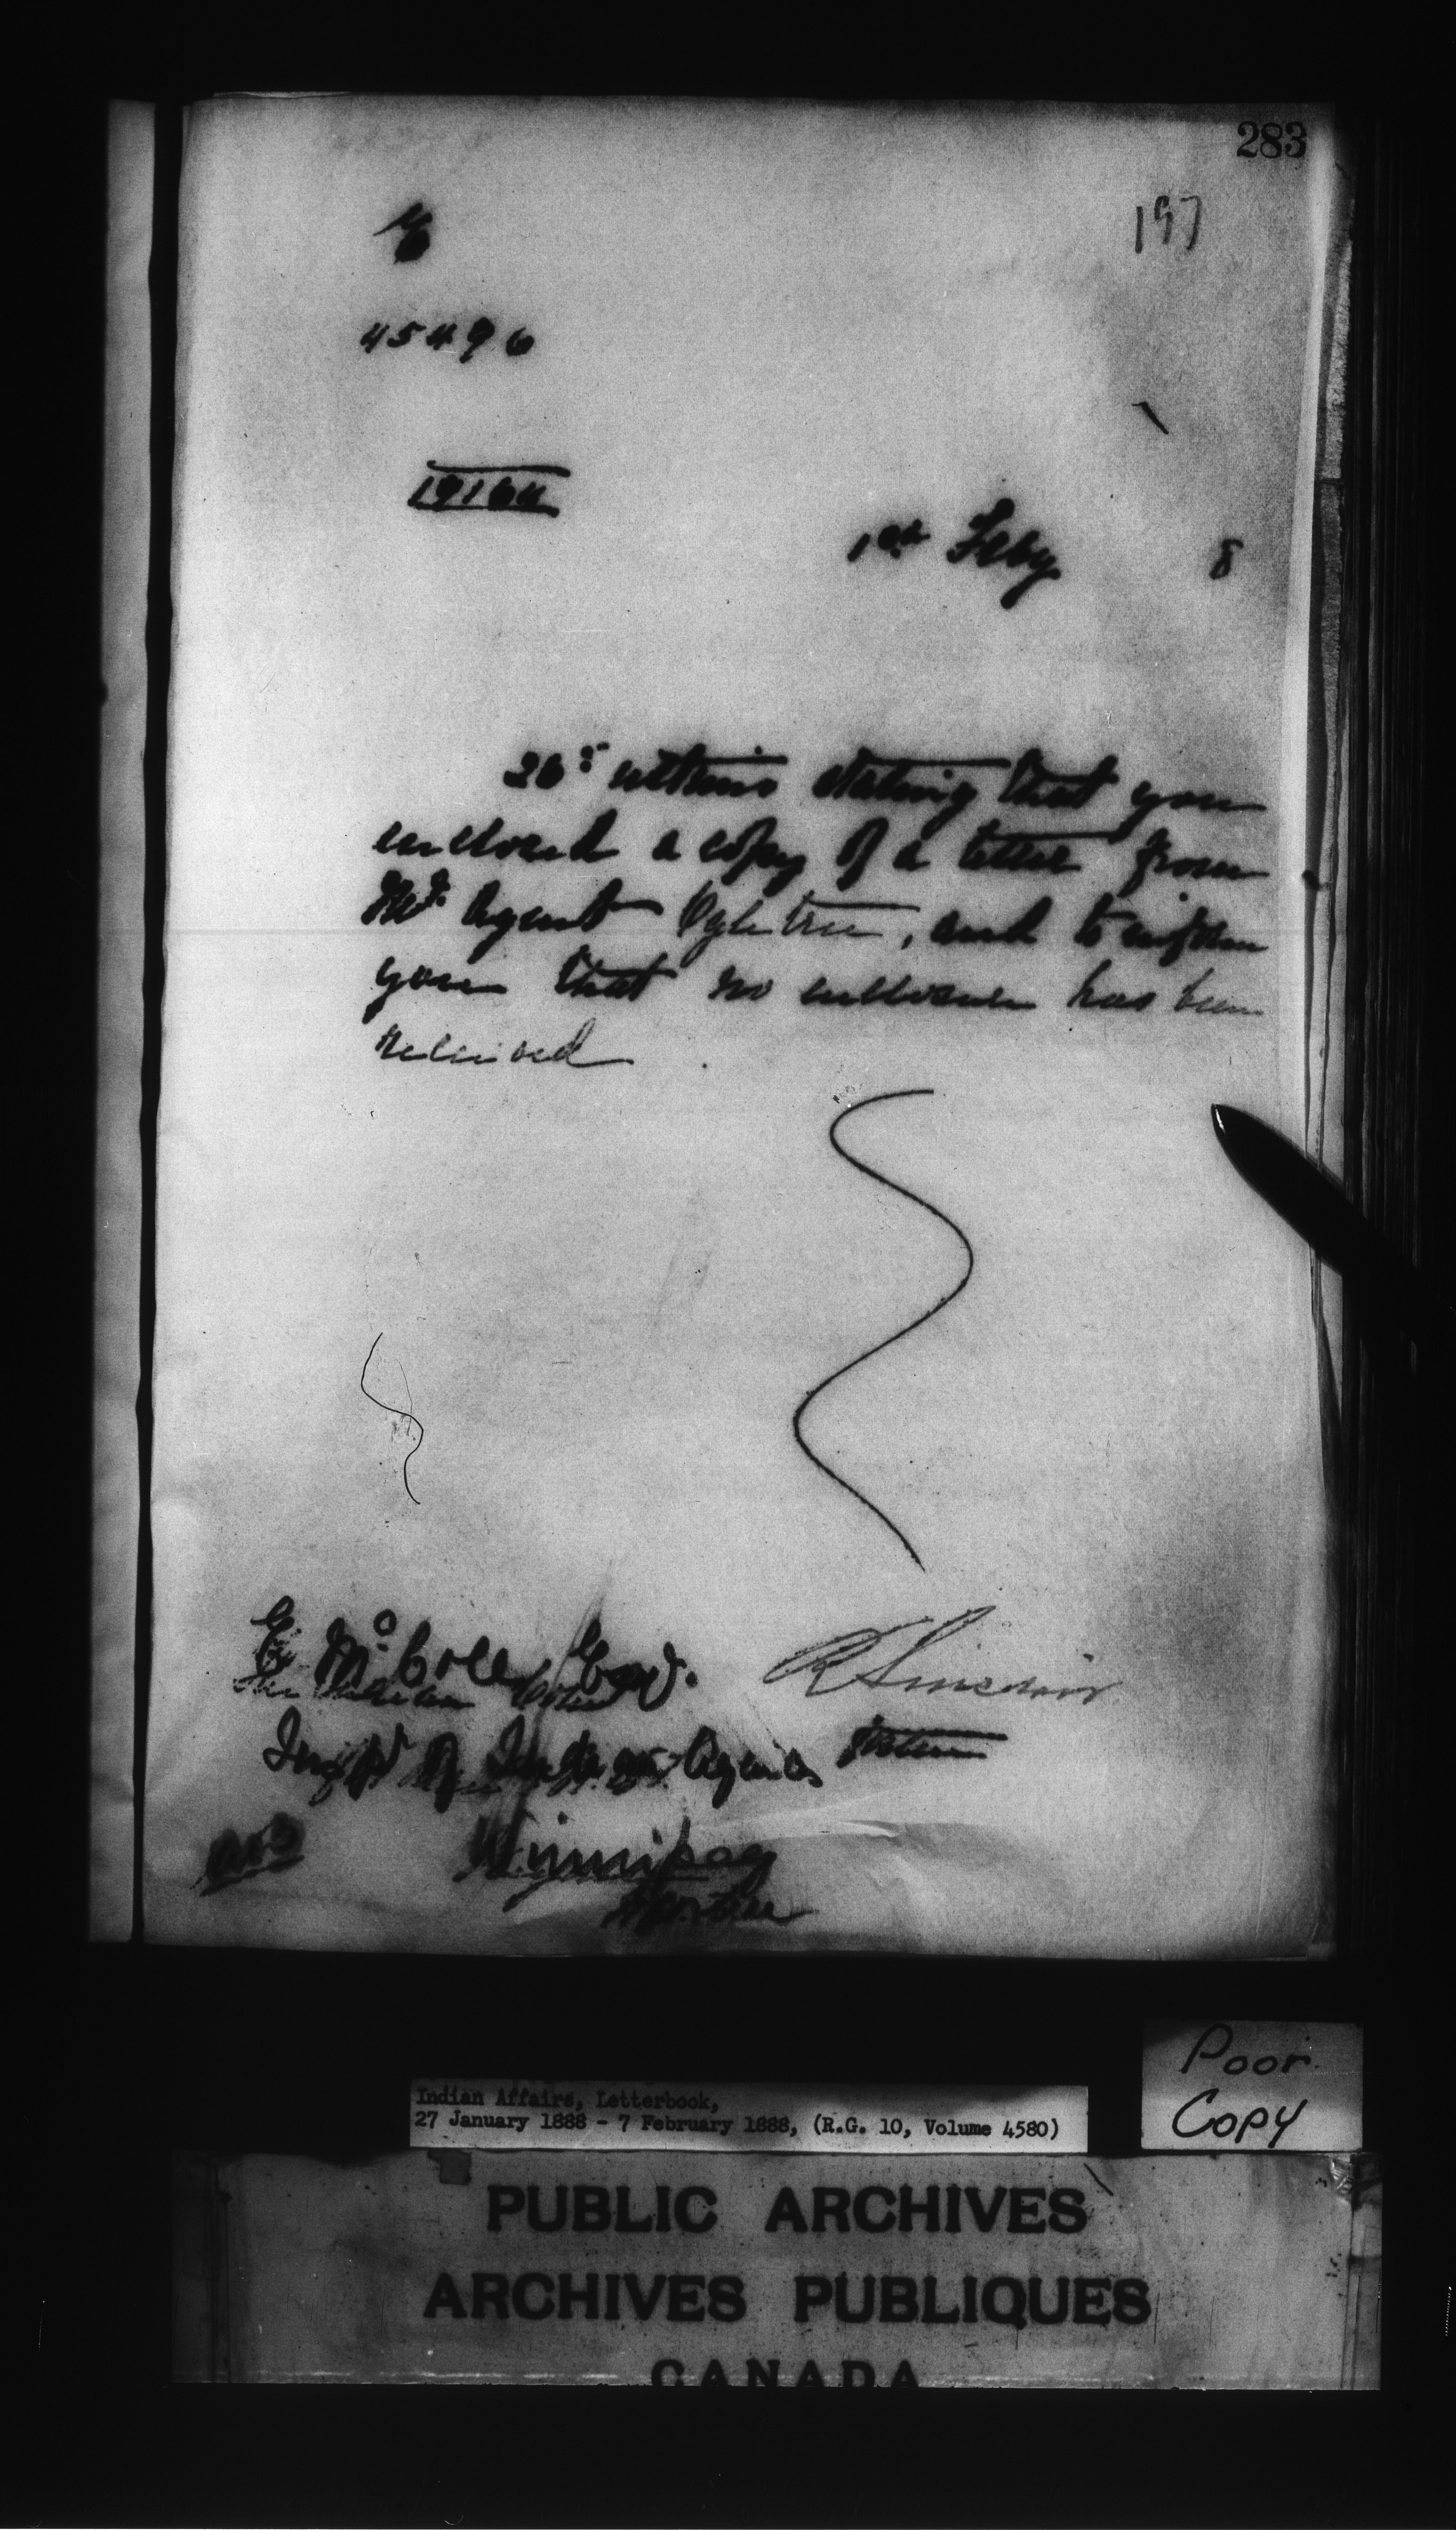 283
197
45496
19164
1st Feby 8
26th ultimo stating that you
enclosed a copy of a letter from
Mr Agent Ogletree, and to inform
you that no enclosure has been
received.
E McColl, Esqr.
R Sinclair
Inspr of Indian Agencies
Winnipeg
Poor
Copy
Indian Affairs, Letterbook,
27 January 1888 - 7 February 1888, (R.G. 10, Volume 4580)
PUBLIC ARCHIVES
ARCHIVES PUBLIQUES
CANADA